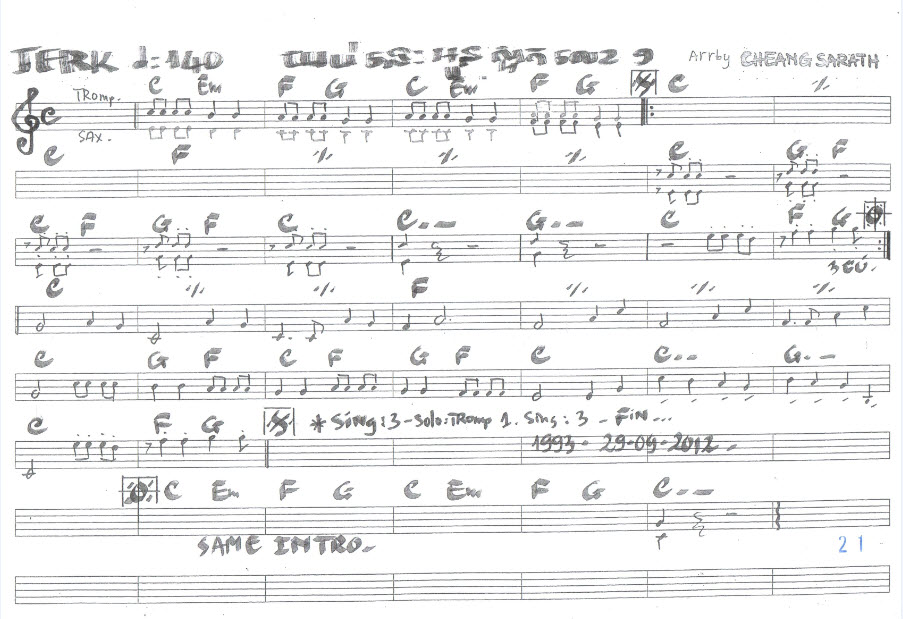 JERK ♩=140 Arrby CHEANG SARATH
C Em F G C Em F G C ٪
TRomp.
SAX.
C F ٪ ٪ ٪ C G F
C F G F C C.. — G.. — C F G
3 CÚ.
C ٪ ٪ F ٪ ٪ ٪
C G F C F G F C C.. G.. —
C F G * Sing:3-Solo:TRomp 1. Sing:3 - FiN...
1993 - 29-09-2012.
C Em F G C Em F G C.. —
SAME INTRO.
21